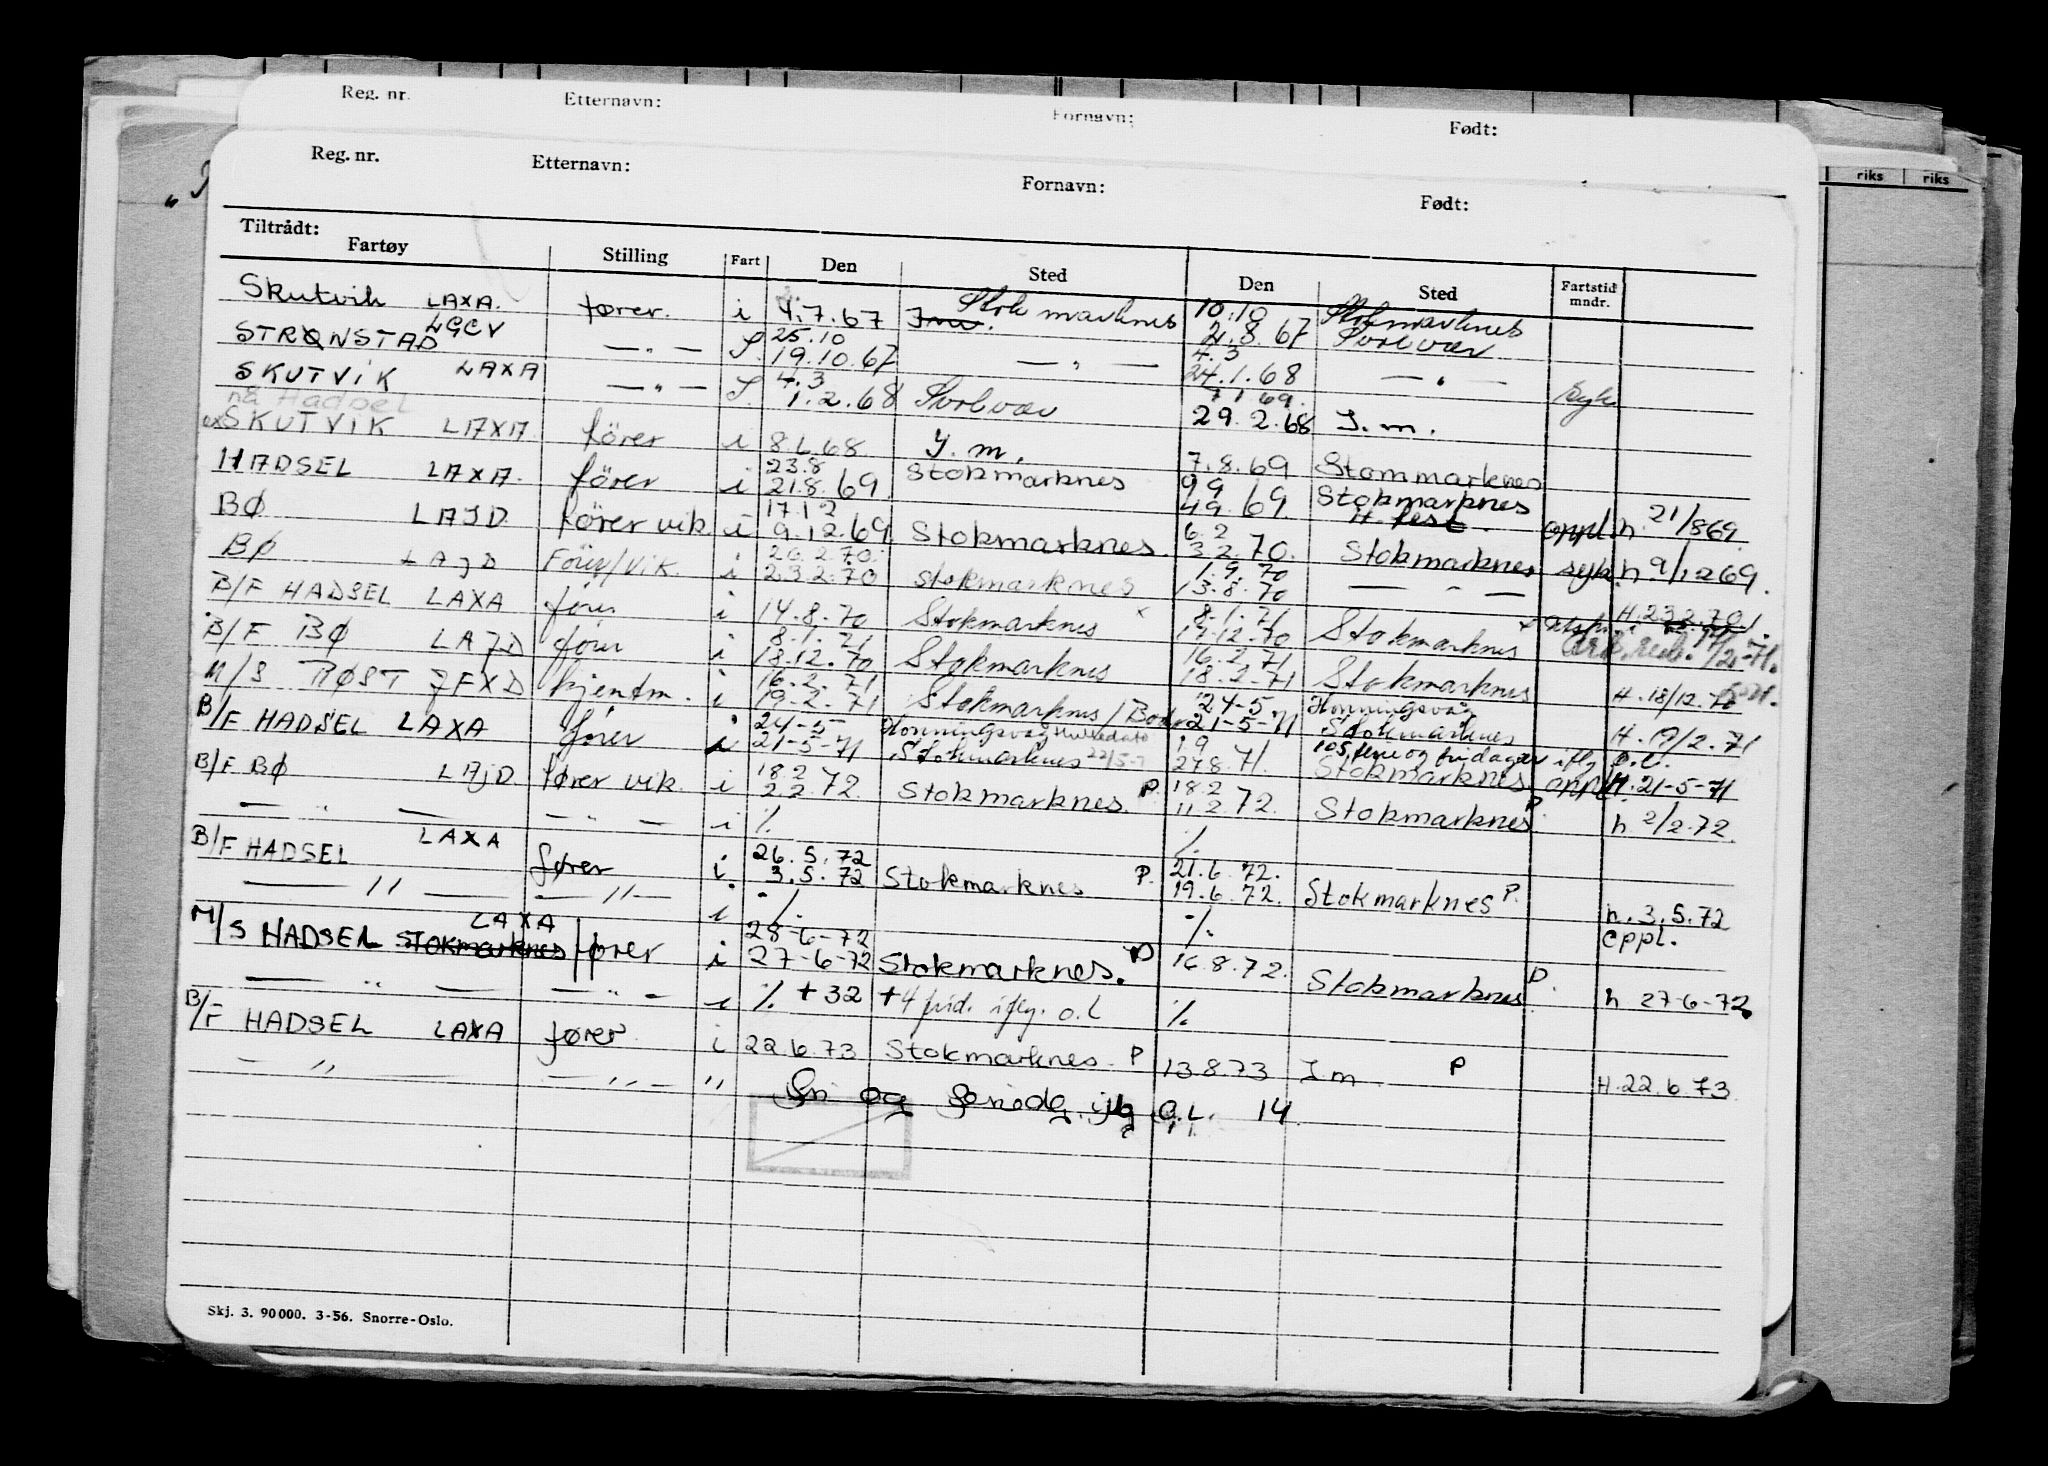 Reg. nr. Etternavn: Fornavn: Født:
Reg. nr. Etternavn: Fornavn: Født:
riks riks
Tiltrådt:
Fartøy Stilling Fart Den Sted Den Sted Fartstid mndr.
Skutvik LAXA. fører. i 4.7.67 Stokmarknes 10.10 4.8.67 Stokmarknes
STRØNSTAD LGCV — " — S. 25.10 19.10.67 — " — 4.3 24.1.68 Svolvær — " —
SKUTVIK LAXA — " — S. 4.3 1.2.68 Svolvær 7.1.69. 29.2.68 I.m. syk
nå Hadsel
ex SKUTVIK LAXA fører i 8.6.68 I.m. 7.8.69 Stommarknes
HADSEL LAXA. fører i 23.8 21.8.69 Stokmarknes 9.9 4.9.69 Stokmarknes oppl. h. 21/869.
BØ LAJD fører vik. i 17.12 9.12.69 Stokmarknes. 6.2 3.2.70. Stokmarknes syk. h 9/1269.
BØ LAJD Förer/Vik. i 26.2.70. 23.2.70 Stokmarknes 1.9.70 13.8.70 — " — H. 23.2.70
B/F HADSEL LAXA fører i 14.8.70 Stokmarknes 8.1.71 17.12.70 Stokmarknes
B/F BØ LAJD fører i 8.1.71 18.12.70 Stokmarknes 16.2.71 18.2.71 Stokmarknes H. 18/12.70
M/S RØST JFXD kjentm. i 16.2.71 19-2.71 Stokmarknes/Bodø 24-5 21-5-71 Honningsvåg Stokmarknes H. 19/2.71
B/F HADSEL LAXA fører i 24-5 21-5-71 Honningsvåg Stokmarknes 22/5-7 1.9 27.8.71. 105 ferie og fridager iflg o.l. Stokmarknes oppl. H. 21-5-71
B/F BØ LAJD. fører vik. i 18.2 2.2.72. Stokmarknes. P. 18.2 11.2.72. Stokmarknes P. h 2/2.72.
— " — — " — i % %
B/F HADSEL LAXA fører i. 26.5.72 3.5.72 Stokmarknes P. 21.6.72. 19.6.72. Stokmarknes P. h. 3.5.72
— " — — " — i % % oppl.
M/S HADSEL Stokmarknes LAXA fører i 28-6-72 27-6-72 Stokmarknes. P 16.8.72. Stokmarknes P. h 27-6-72
— " — — " — i % + 32 + 4 frid. iflg. o.l %
B/F HADSEL LAXA fører i 22.6.73 Stokmarknes. P 13.8.73 I m. P H. 22.6.73
— " — — " — " Fri og feriedg. iflg O.L. 14.
Skj. 3. 90000. 3-56. Snorre-Oslo.